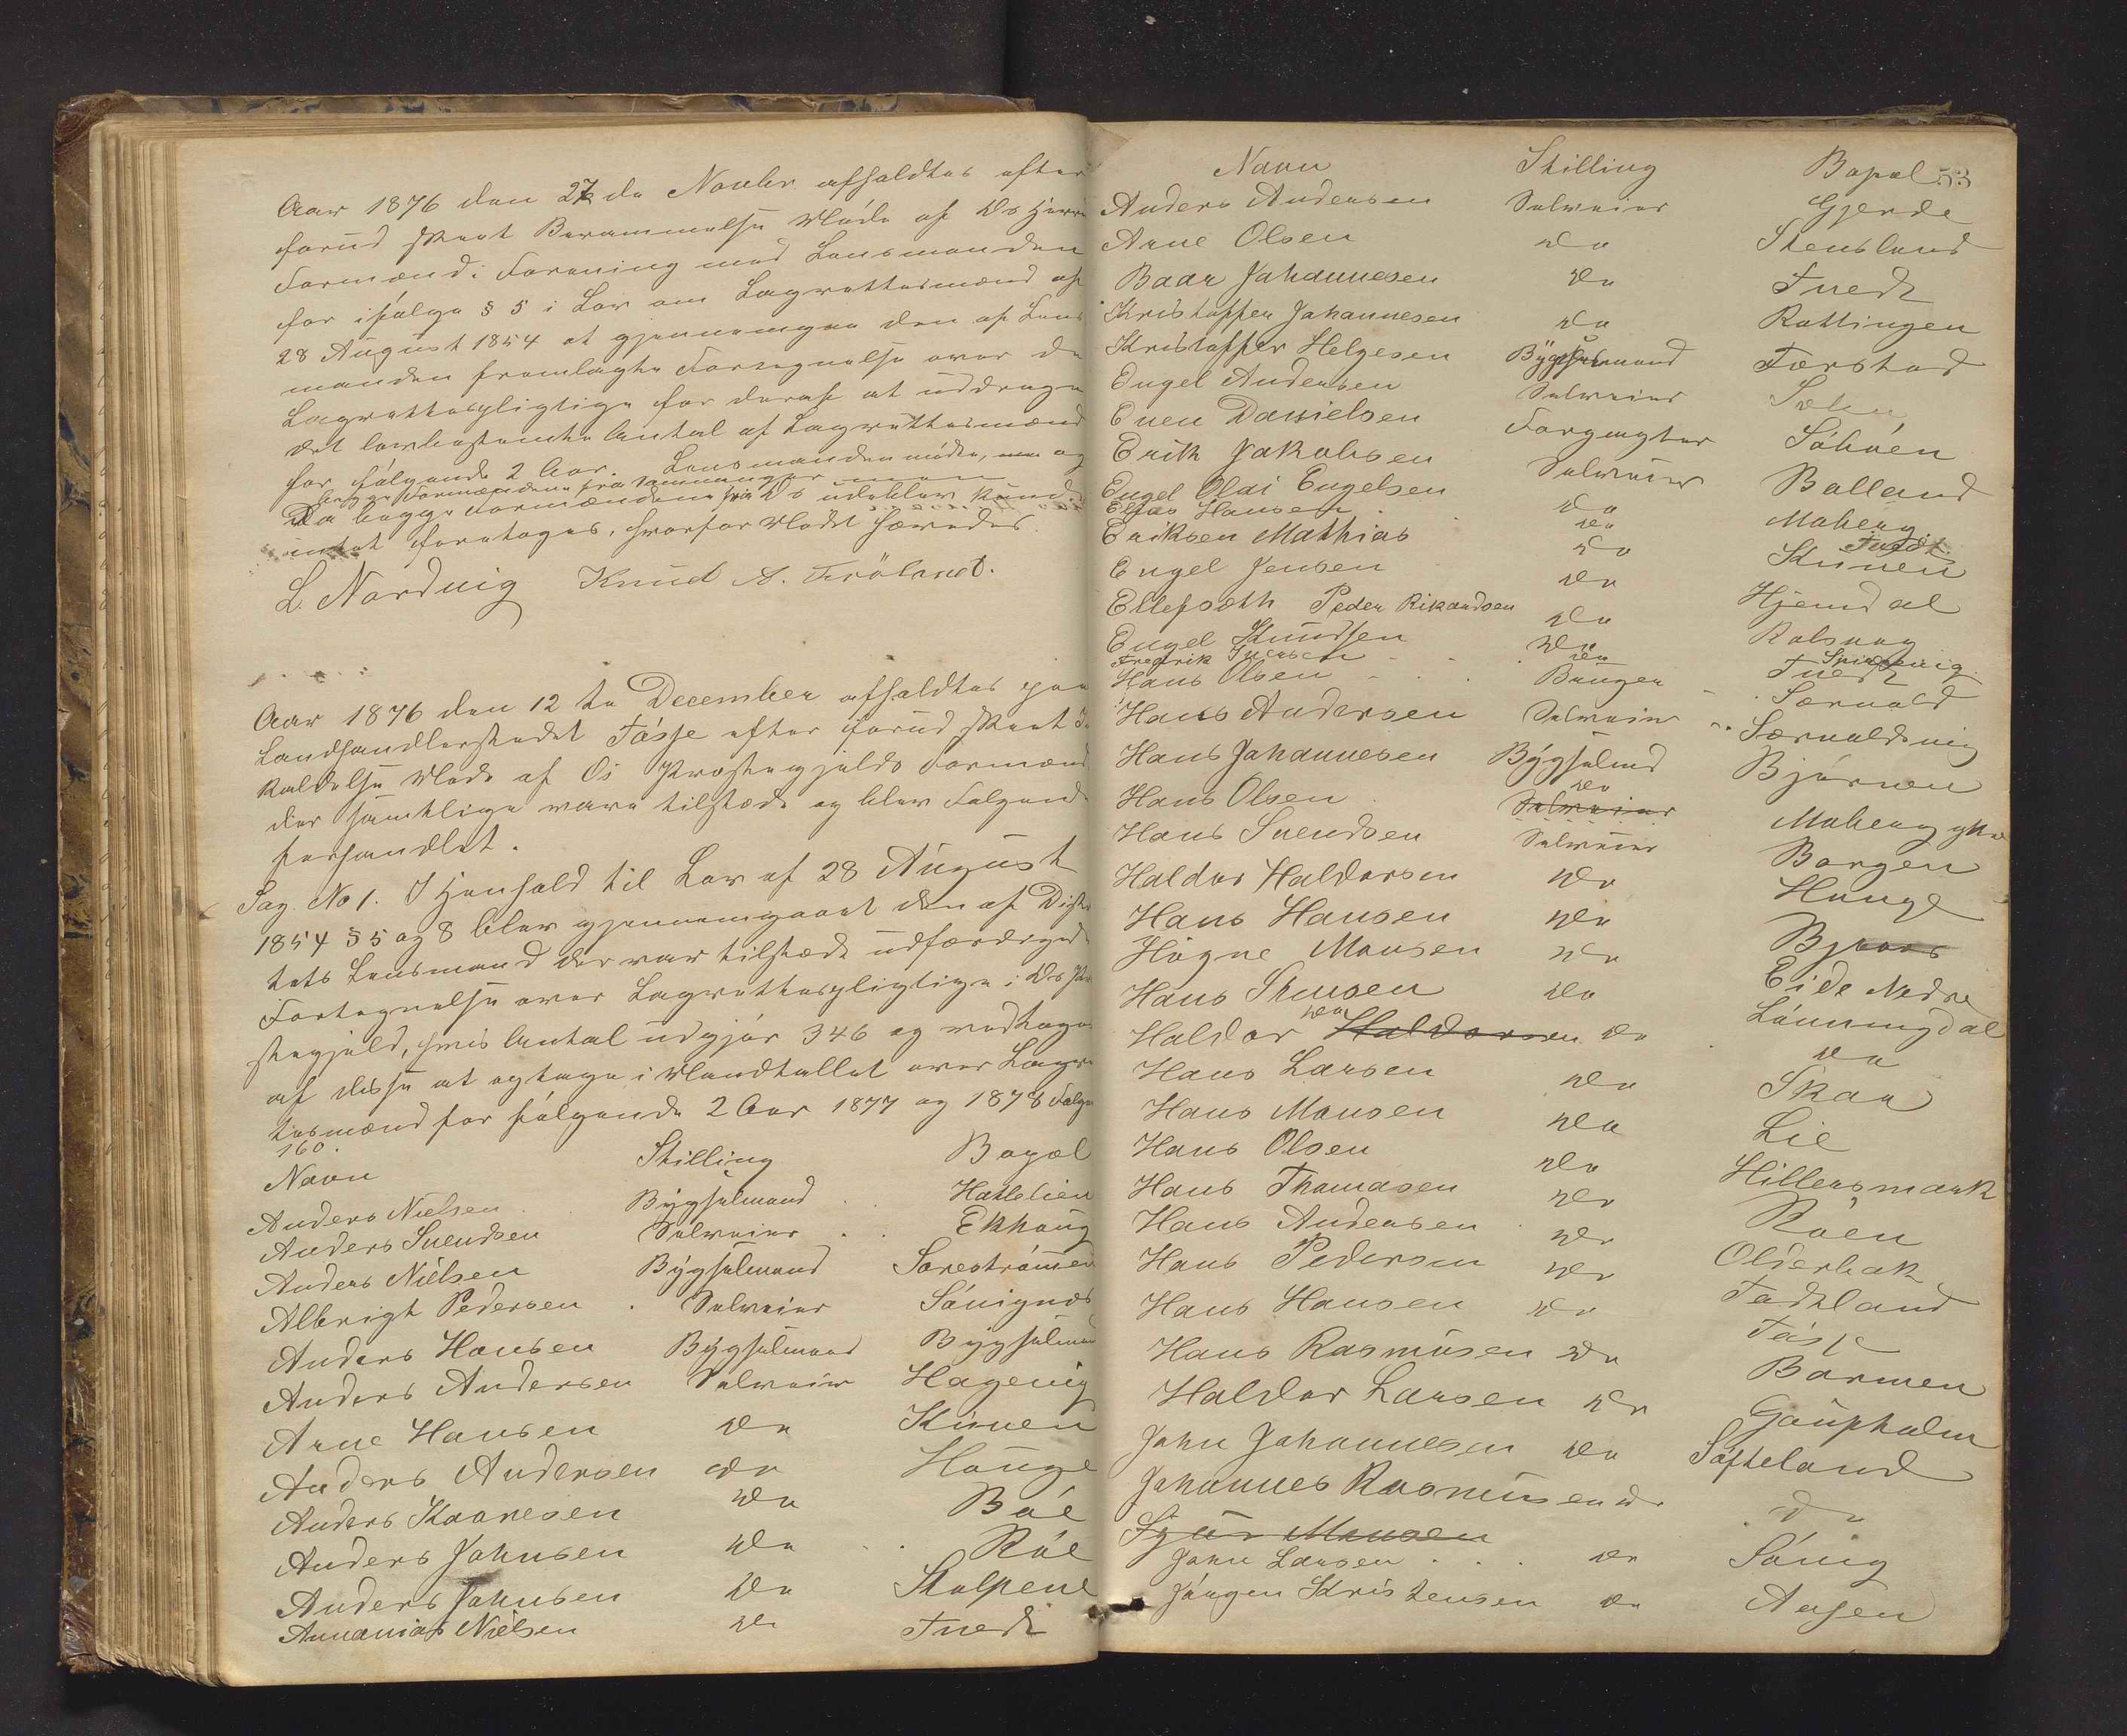 Aar 1876 den 27de Novbr afholdtes efter
forud skeet Berammelse Møde af Os Herreds
Formænd i Forening med Lensmanden
for ifølge § 5 i Lov om Lagrettesmænd af
28 August 1854 at gjennemgaa den af Lens
manden fremlagte Fortegnelse over de
Lagrettespligtige for deraf at uddrage
det lovbestemte Antal af Lagrettesmænd
for følgende 2 Aar. Lensmanden mødte, og
begge Formændene fra
Da begge Formændene fra Os udeblev kunde
intet foretages, hvorfor Mødet hævedes.
L. Nordvig Knud A. Frøland.
Aar 1876 den 12te December afholdtes paa
Landhandlerstedet Tøsse efter forud skeet Ind
kaldelse Møde af Os Præstegjelds Formænd
der samtlige vare tilstæde og blev Følgende
forhandlet.
Sag No 1. I Henhold til Lov af 28 August
1854 § 5 og 8 blev gjennemgaaet den af Distr
tets Lensmand der var tilstæde udfærdigede
Fortegnelse over Lagrettespligtige i Os Præ
stegjeld, hvis Antal udgjør 346 og vedtages
af disse at optage i Mandtallet over Lagret
tesmænd for følgende 2 Aar 1877 og 1878 Følgende
160.
Navn Stilling Bopæl
Anders Nielsen Bygselmand Hatlelien
Anders Svendsen Selveier Ekhaug
Anders Nielsen Bygselmand Sørestrømen
Albrigt Pedersen Selveier Søvignæs
Anders Hansen Bygselmand Bygselmand
Anders Andersen Selveier Hagevig
Arne Hansen do Kuven
Anders Andersen do Hauge
Anders Kaaresen do Bøe
Anders Johnsen do Røe
Anders Johnsen do Skulpene
Annanias Nielsen do Tvedt
Navn Stilling Bopæl 53
Anders Andersen Selveier Gjerde
Arne Olsen do Stensland
Baar Johannesen do Tvedt
Kristoffer Johannesen do Rottingen
Kristoffer Helgesen Bygselmand Færstad
Engel Andersen Selveier
Even Danielsen Forpagter Søbøen
Erik Jakobsen Selveier Balland
Engel Olai Engelsen do Moberg
Elias Hansen do Tvedt
Eriksen Mathias do Kuven
Engel Jensen do Hjemdal
Ellefsæth Peder Rikardsen do Rolsvaag
Engel Knudsen do Tvedt
Fredrik Iversen do
Hans Olsen Bruger Særvold
Hans Andersen Selveier Særvoldsvig
Hans Johannesen Bygselmd Bjørnen
Hans Olsen do Moberg ytre
Selveier
Hans Svendsen Selveier Borgen
Haldor Haldorsen do Hauge
Hans Hansen do Bjaanes
Høgne Monsen do Eide Nedre
Hans Stensen do Lønningdal
Haldor Haldorsen do do
Hans Larsen do Skaa
Hans Monsen do Lie
Hans Olsen do Hillersmark
Hans Thomasen do Røen
Hans Andersen do Olderbak
Hans Pedersen do Fadtland
Hans Hansen do Tøsse
Hans Rasmusen do Barmen
Haldor Larsen do Gaupholm
John Johannesen do Søfteland
Johannes Rasmusen do do
Sjur Monsen
John Larsen do Søvig
Jørgen Kristensen do Aasen